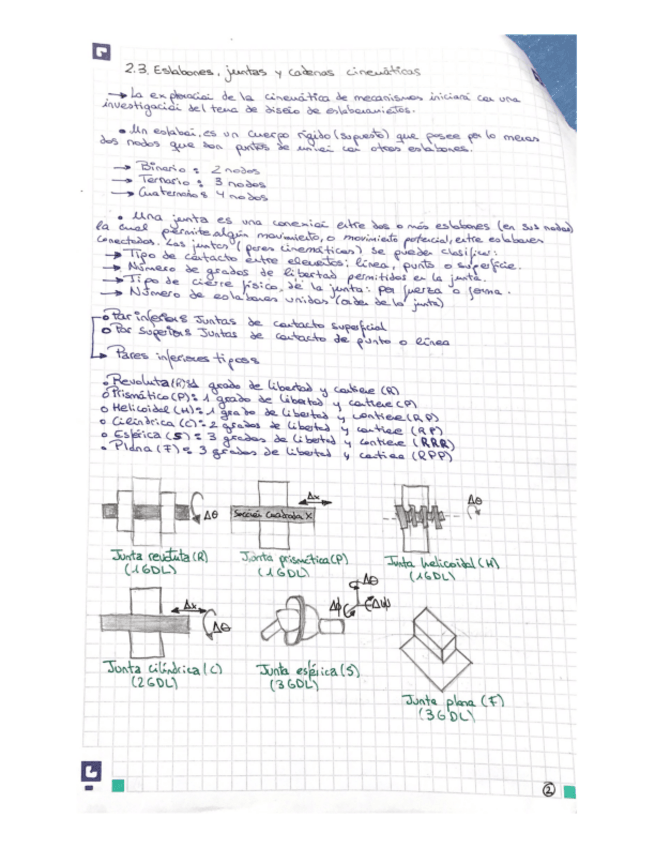 2.3. Eslabones, juntas y cadenas cinemáticas
→ La exploración de la cinemática de mecanismos iniciará con una
investigación del tema de diseño de eslabonamientos.
• Un eslabón, es un cuerpo rígido (supuesto) que posee por lo menos
dos nodos que son puntos de unión con otros eslabones.
→ Binario: 2 nodos
→ Ternario: 3 nodos
→ Cuaternario: 4 nodos
• Una junta es una conexión entre dos o más eslabones (en sus nodos)
la cual permite algún movimiento, o movimiento potencial, entre eslabones
conectados. Las juntas (pares cinemáticos) se pueden clasificar:
→ Tipo de contacto entre elementos: línea, punto o superficie.
→ Número de grados de libertad permitidos en la junta.
→ Tipo de cierre físico, de la junta: por fuerza o forma.
→ Número de eslabones unidos (orden de la junta)
o Par inferior: Juntas de contacto superficial
o Par superior: Juntas de contacto de punto o línea
→ Pares inferiores tipos:
• Revoluta (R): 1 grado de libertad y contiene (R)
o Prismático (P): 1 grado de libertad y contiene (P)
o Helicoidal (H): 1 grado de libertad y contiene (RP)
• Cilíndrica (C): 2 grados de libertad y contiene (RP)
• Esférica (S): 3 grados de libertad y contiene (RRR)
• Plana (F): 3 grados de libertad y contiene (RPP)
Δθ
Sección Cuadrada X
Δx
Δθ
Junta revoluta (R)
(1GDL)
Junta prismática (P)
(1GDL)
Junta helicoidal (H)
(1GDL)
Δx
Δθ
Δθ
Δϕ
Δψ
Junta cilíndrica (C)
(2GDL)
Junta esférica (S)
(3GDL)
Junta plana (F)
(3GDL)
2